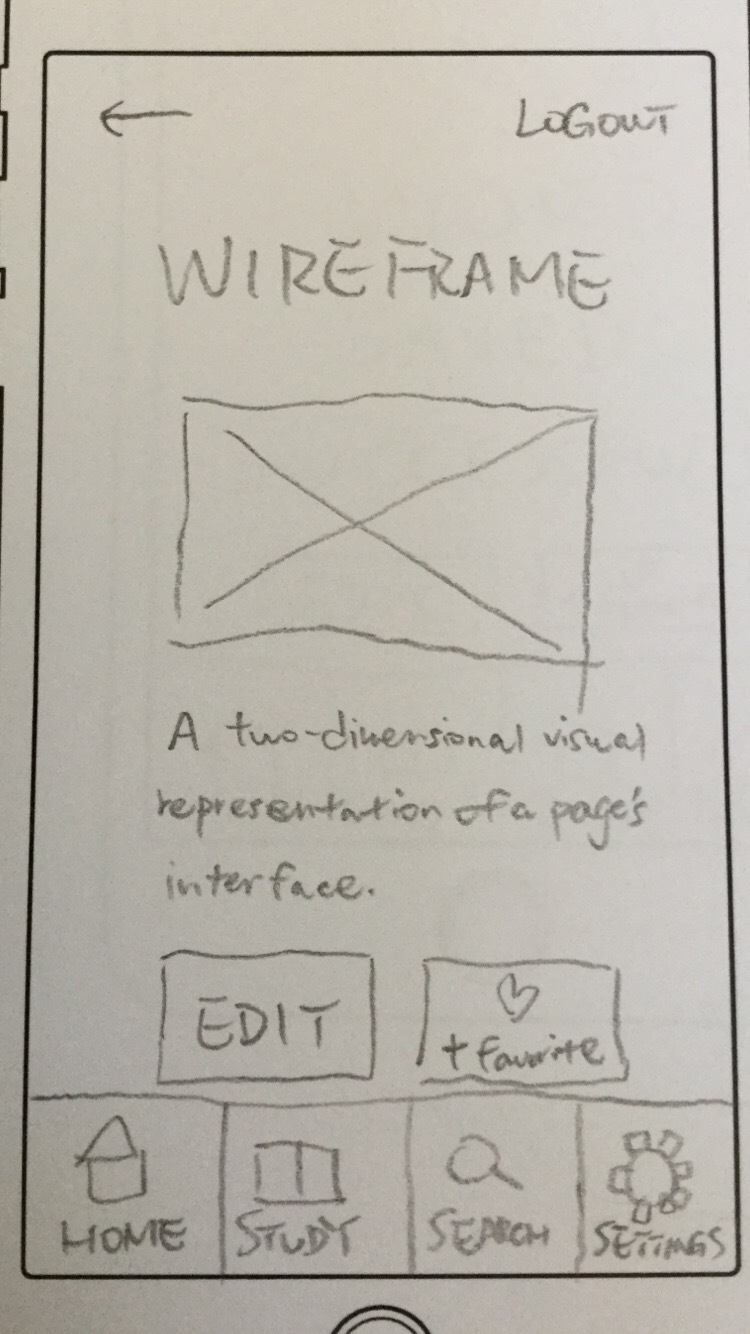 LOGOUT
WIREFRAME
A two-dimensional visual
representation of a page's
interface.
EDIT
+ Favorite
HOME
STUDY
SEARCH
SETTINGS